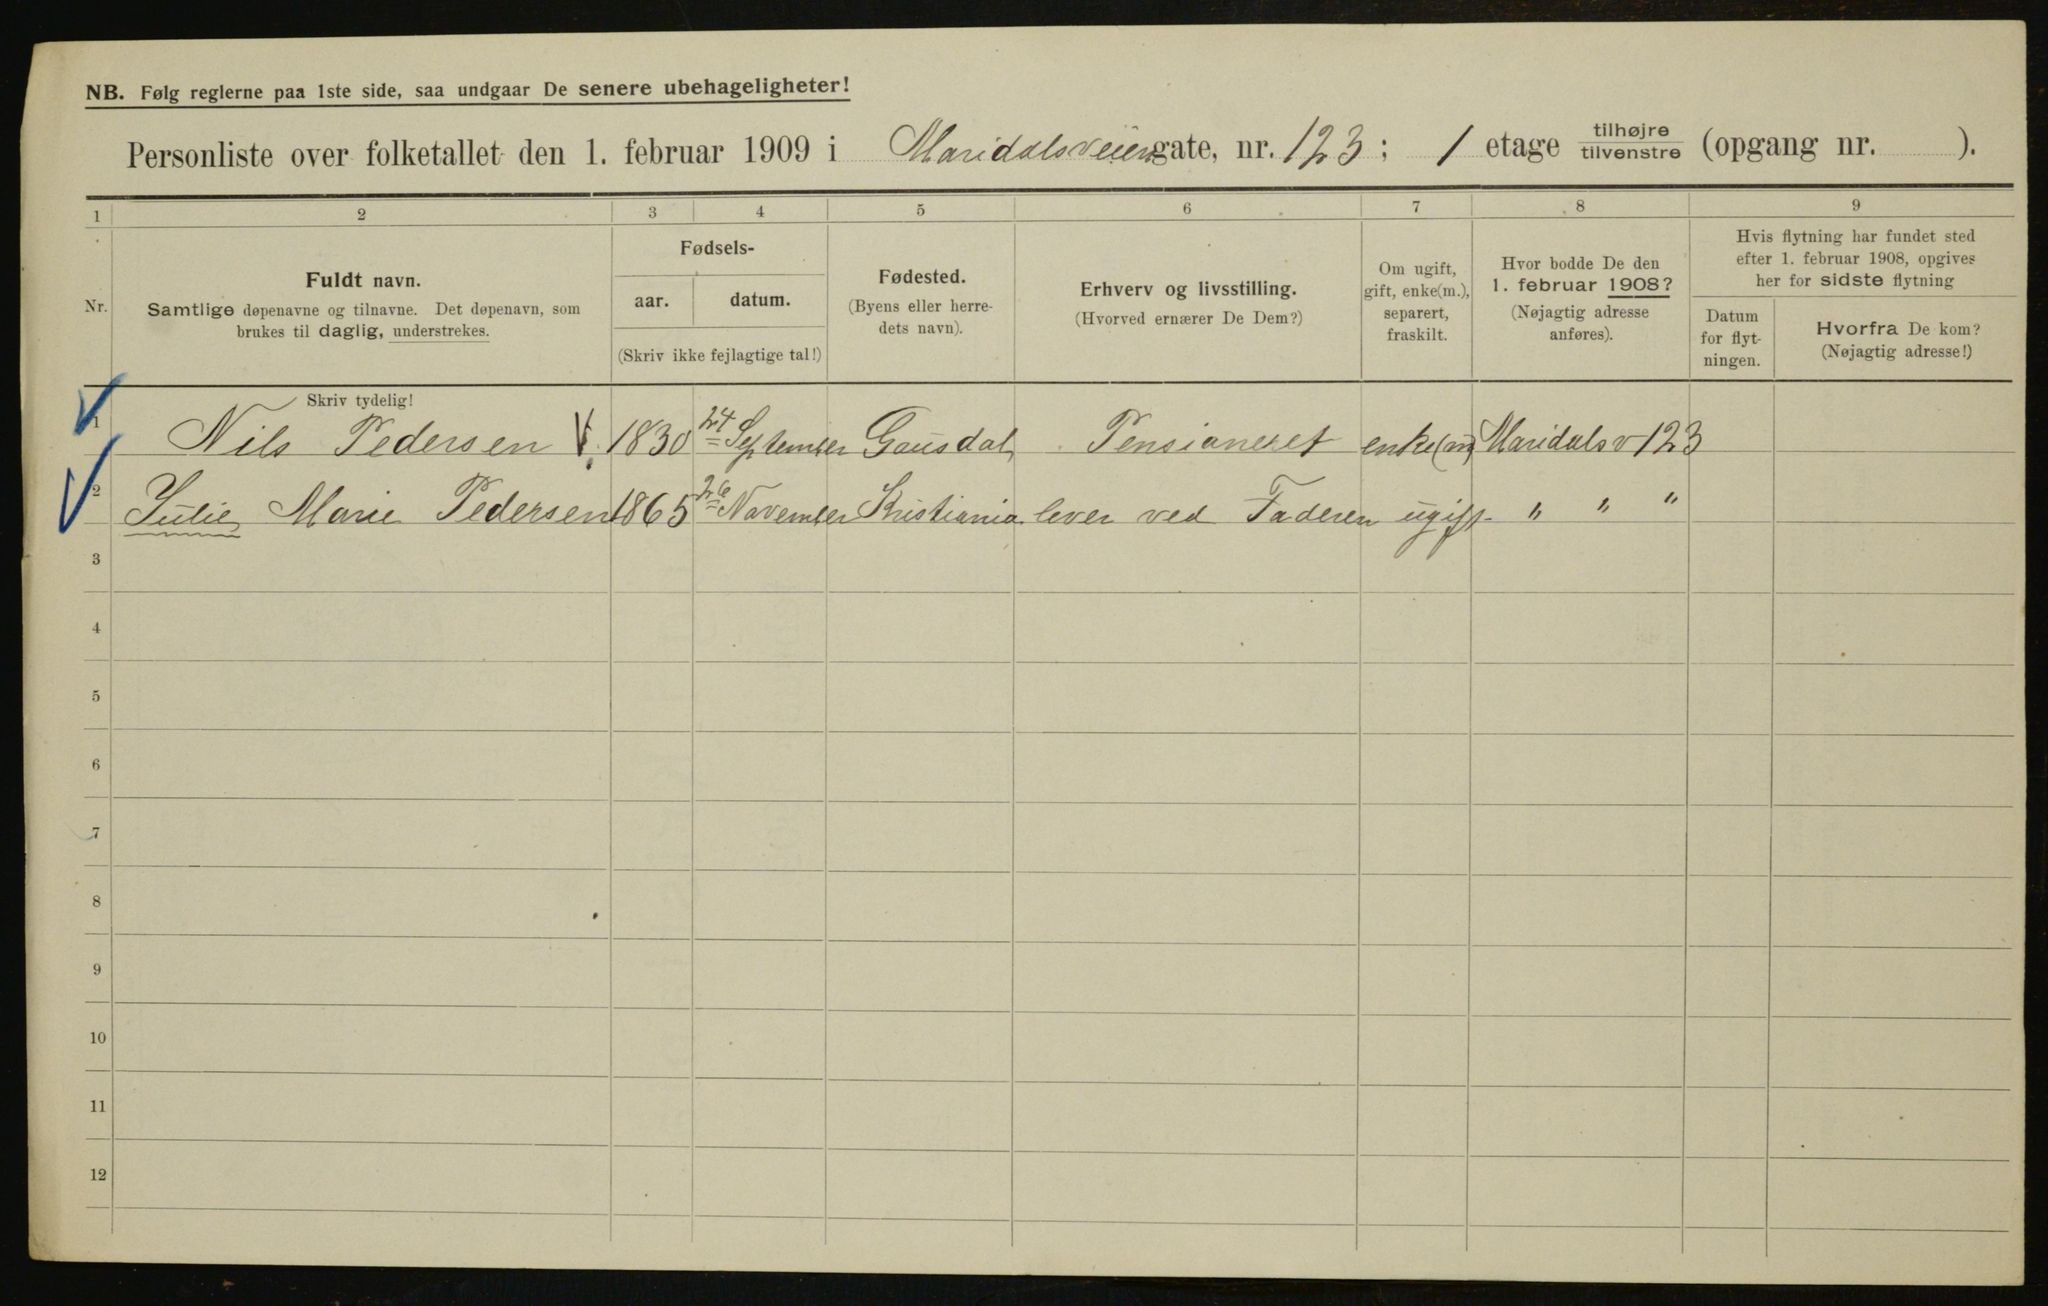 NB. Følg reglerne paa 1ste side, saa undgaar De senere ubehageligheter!
Personliste over folketallet den 1. februar 1909 i Maridalsveien gate, nr. 123; 1 etage tilhøjre/tilvenstre (opgang nr. ).
1 2 3 4 5 6 7 8 9
Nr.
Fuldt navn.
Samtlige døpenavne og tilnavne. Det døpenavn, som
brukes til daglig, understrekes.
Fødsels-
aar. datum.
(Skriv ikke fejlagtige tal!)
Fødested.
(Byens eller herre-
dets navn).
Erhverv og livsstilling.
(Hvorved ernærer De Dem?)
Om ugift,
gift, enke(m.),
separert,
fraskilt.
Hvor bodde De den
1. februar 1908?
(Nøjagtig adresse
anføres).
Hvis flytning har fundet sted
efter 1. februar 1908, opgives
her for sidste flytning
Datum
for flyt-
ningen.
Hvorfra De kom?
(Nøjagtig adresse!)
Skriv tydelig!
1 Nils Pedersen 1830 24 September Gausdal Pensioneret enke(m) Maridalsv 123
2 Julie Marie Pedersen 1865 26 November Kristiania lever ved Faderen ugift " " "
3
4
5
6
7
8
9
10
11
12